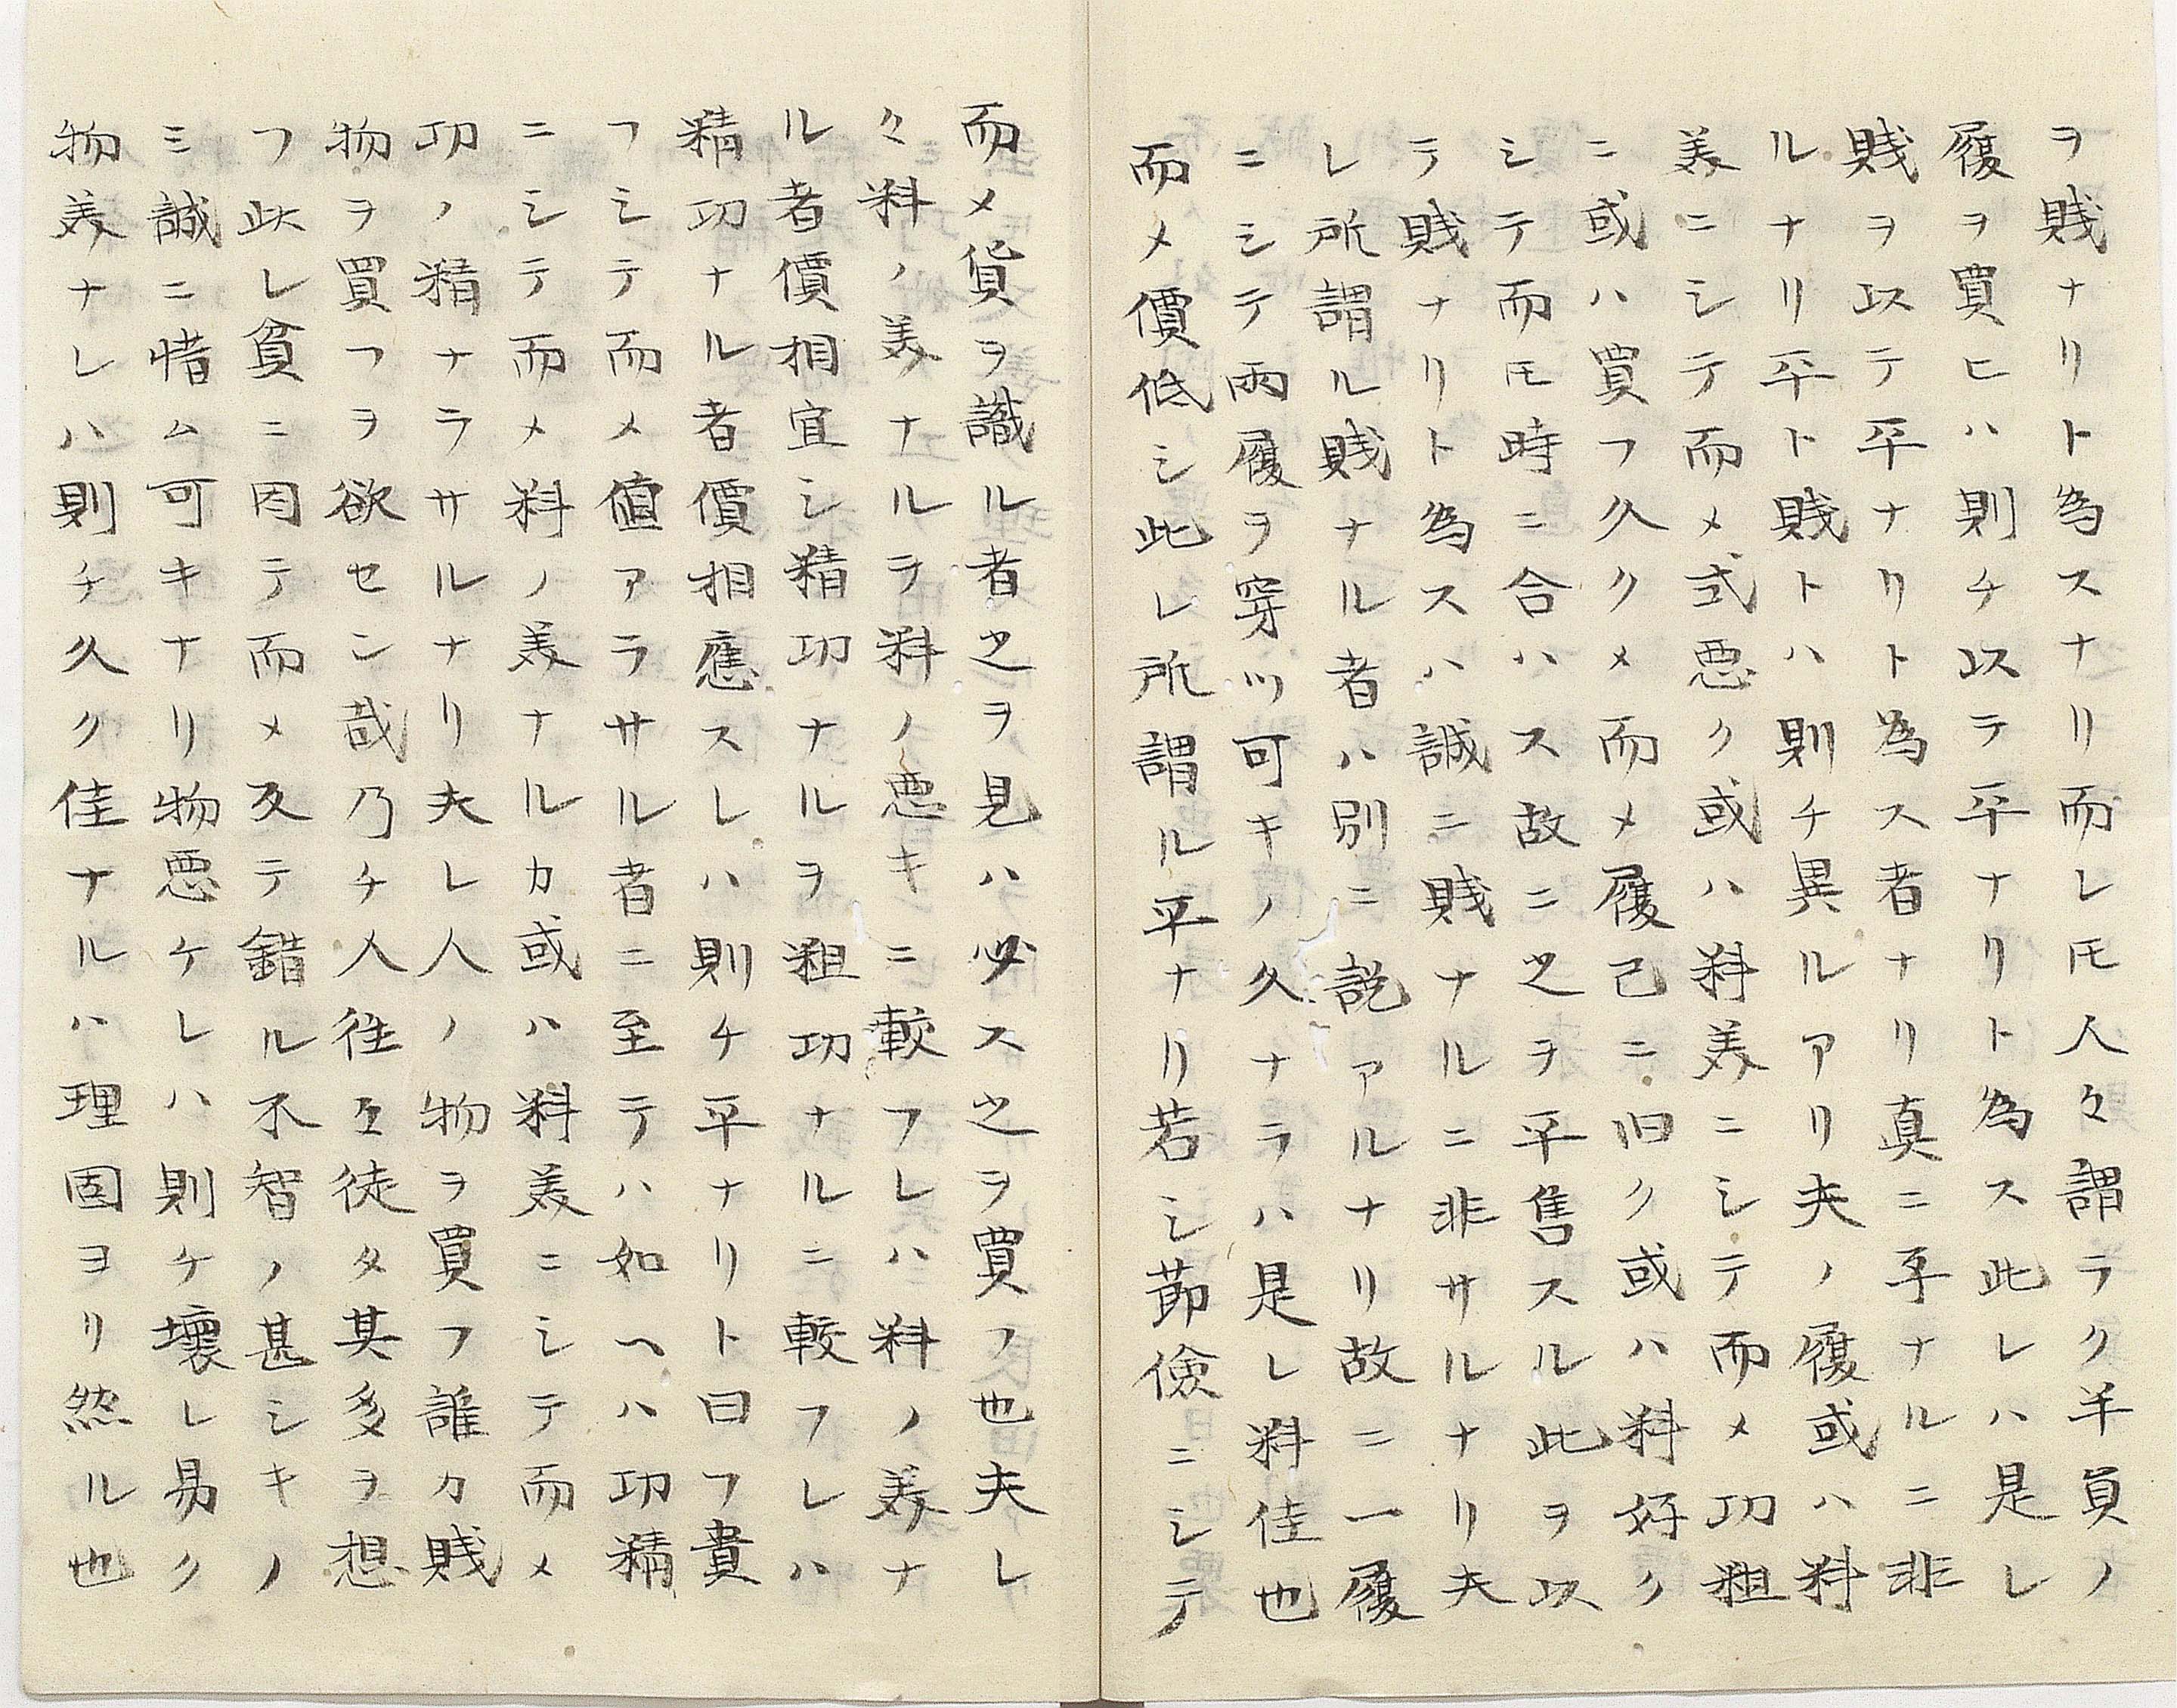 ヲ賤ナリト為スナリ而レ𪜈人々謂ラク半員ノ
履ヲ買ヒハ則チ以テ平ナリト為ス此レハ是レ
賤ヲ以テ平ナリト為ス者ナリ真ニ平ナルニ非
ルナリ平ト賤トハ則チ異ルアリ夫ノ履或ハ料
美ニシテ而メ式悪ク或ハ料美ニシテ而メ功粗
ニ或ハ買フ久クメ而メ履己ニ旧ク或ハ料好ク
シテ而𪜈時ニ合ハス故ニ之ヲ平售スル此ヲ以
テ賤ナリト為スハ誠ニ賤ナルニ非サルナリ夫
レ所謂ル賤ナル者ハ別ニ説アルナリ故ニ一履
ニシテ両履ヲ穿ツ可キノ久ナラハ是レ料佳也
而メ價低シ此レ所謂ル平ナリ若シ節儉ニシテ
而メ貨ヲ識ル者之ヲ見ハ必ス之ヲ買フ也夫レ
々料ノ美ナルヲ料ノ悪キニ較フレハ料ノ美ナ
ル者價相宜シ精功ナルヲ粗功ナルニ較フレハ
精功ナル者價相應スレハ則チ平ナリト曰フ貴
フシテ而メ値アラサル者ニ至テハ如ヘハ功精
ニシテ而メ料ノ美ナルカ或ハ料美ニシテ而メ
功ノ精ナラサルナリ夫レ人ノ物ヲ買フ誰カ賤
物ヲ買フヲ欲セン哉乃チ人往々徒タ其多ヲ想
フ此レ貧ニ因テ而メ反テ錯ル不智ノ甚シキノ
ミ誠ニ惜ム可キナリ物悪ケレハ則ケ壊レ易ク
物美ナレハ則チ久ク佳ナルハ理固ヨリ然ル也